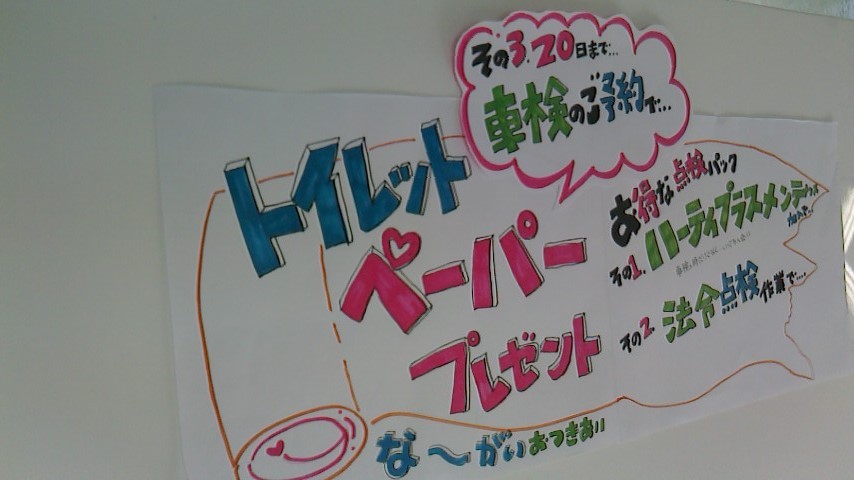 その3. 20日まで…
車検のご予約で…
トイレット
ペーパー
プレゼント
な〜がいおつきあい
お得な点検パック
その1. ハーティプラスメンテナンス
加入で…
その2. 法令点検作業で…